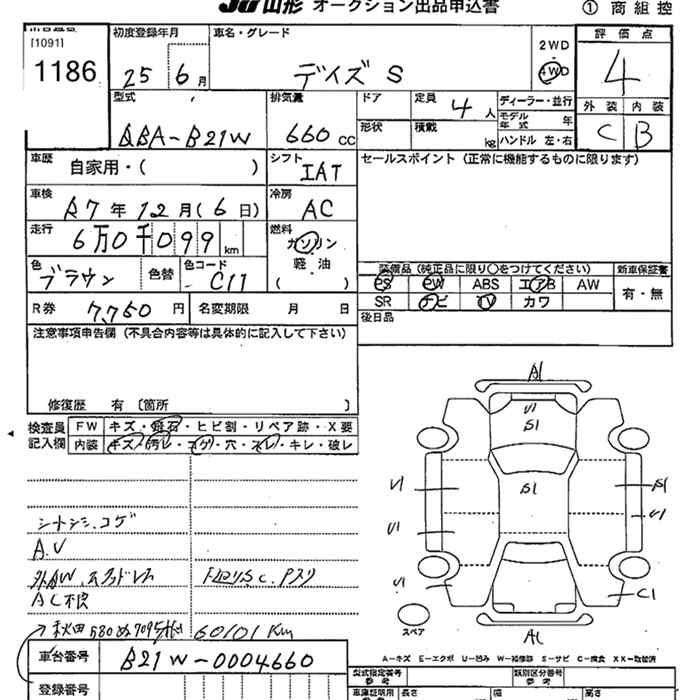 JU山形 オークション出品申込書
① 商組控
[1091]
1186
初度登録年月
25 6月
車名・グレード
デイズ S
2WD
4WD
評価点
4
型式
DBA-B21W
排気量
660 CC
ドア
定員 4 人
ディーラー・並行
モデル年式 年
外装 内装
C B
形状
積載 kg
ハンドル 左・右
車歴
自家用・( )
シフト
IAT
セールスポイント (正常に機能するものに限ります)
車検
R7 年 12月 (6日)
冷房
AC
走行
6万0千099 km
燃料
ガソリン
軽・油
( )
色
ブラウン
色替
色コード
C11
装備品 (純正品に限り○をつけてください)
新車保証書
PS PW ABS エアB AW
有・無
SR ナビ TV カワ
R券 7,750 円
名変期限 月 日
後日品
注意事項申告欄 (不具合内容等は具体的に記入して下さい)
修復歴 有 〔箇所 〕
検査員記入欄
FW キズ・飛石・ヒビ割・リペア跡・X要
内装 キズ・汚レ・コゲ・穴・スレ・キレ・破レ
シートシミ、コゲ
A.V
AC不良
60101 Km
車台番号 B21W-0004660
登録番号
A1
U1
S1
S1
U1
U1
U1
S1
U1
C1
A1
スペア
A-キズ E-エクボ U-凹み W-補修跡 S-サビ C-腐食 XX-取替済
型式指定番号
参考
類別区分番号
参考
車庫証明用
長さ
幅
高さ